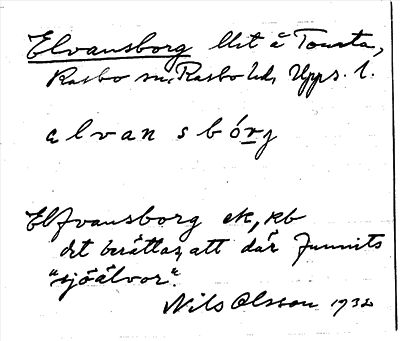 Elvansborg llet å Tousta,
Rasbo sn, Rasbo hd, Upps. l.
alvansbórg
Elfvansborg ek, kb
det berättas, att där funnits
"sjöälvor".
Nils Olsson 1932